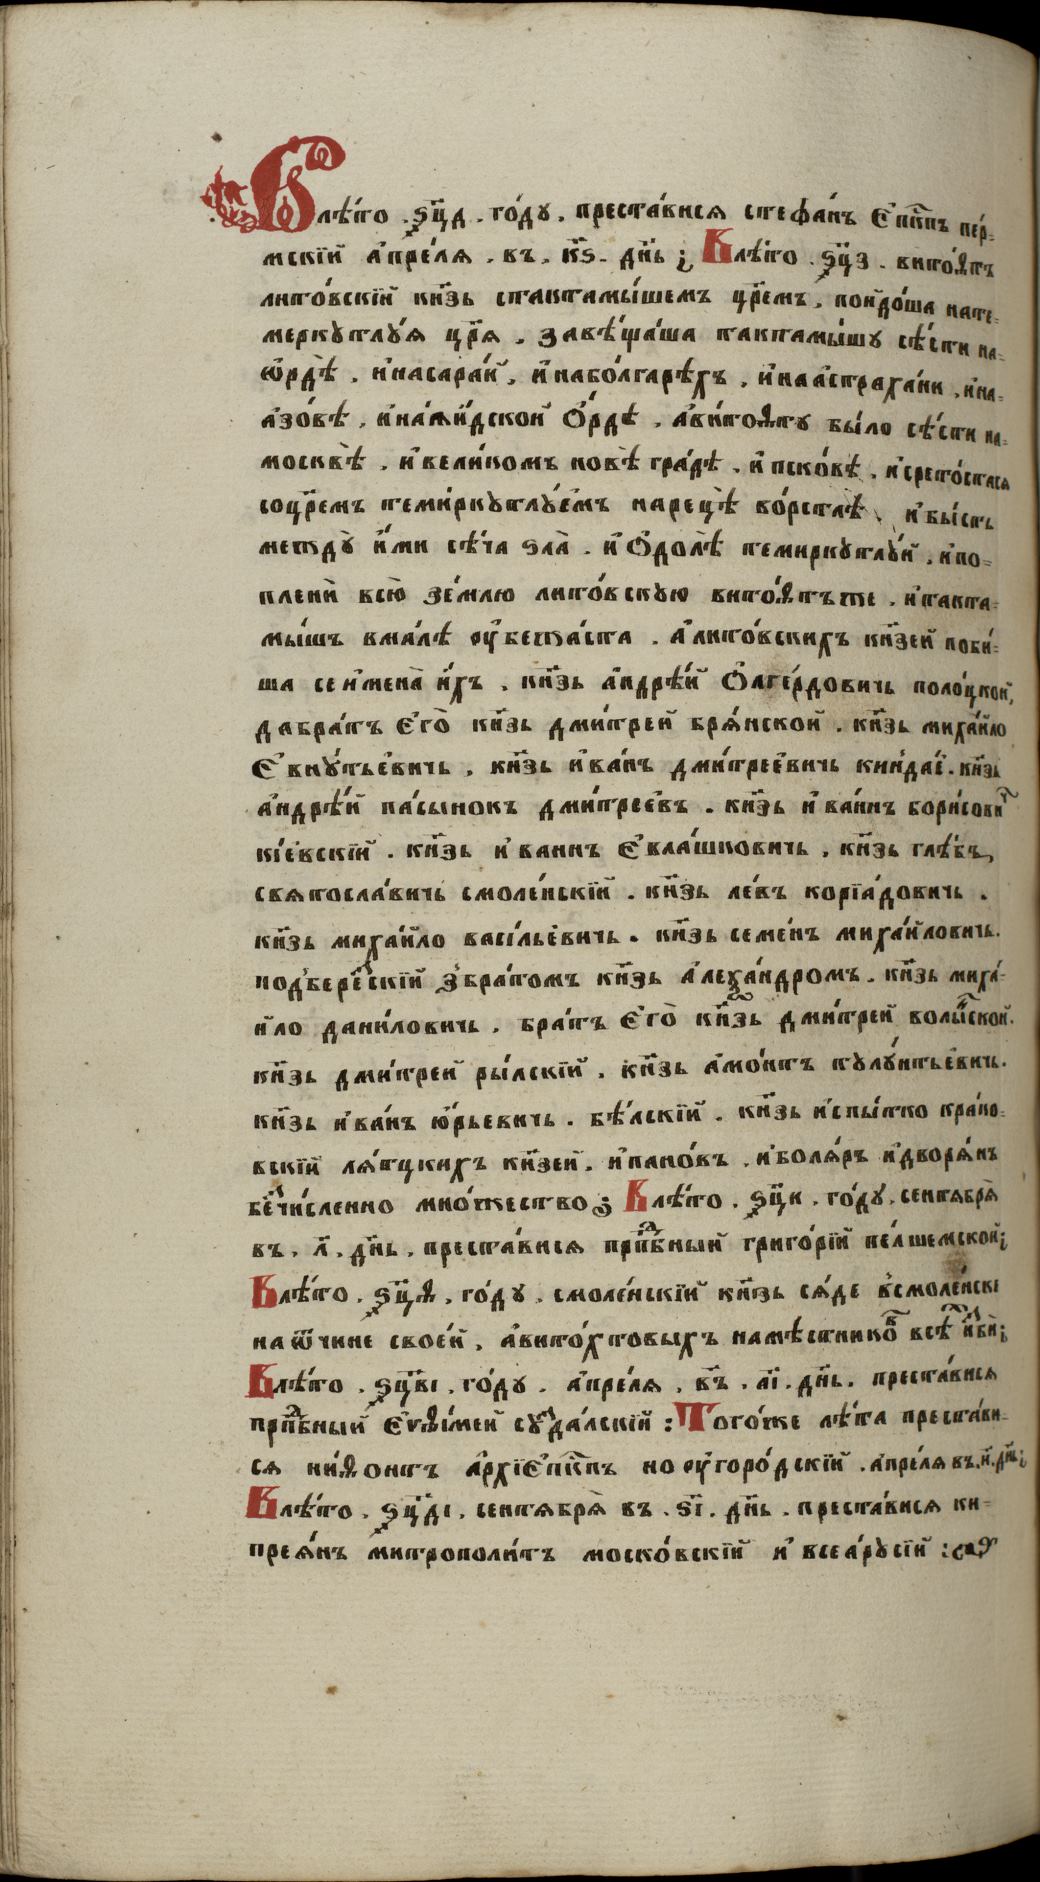 Влѣ́то ҂ѕ҃цд . го́дꙋ . преста́висѧ стефа́нъ Є҆пⷭ҇кпъ пе́р-
мскїй а҆пре́лѧ . въ . к҃ѕ . дн҃ь ; Влѣ́то ҂ѕ҃цз . вито́ѳтъ
лито́вскїй кн҃зь стактамы́шемъ цр҃емъ . поидо́ша нате-
меркꙋтлꙋ́ѧ цр҃ѧ . завѣща́ша тактамы́шꙋ сѣ́сти на-
ѻ҆рдѣ̀ . и҆насара́й . и҆набо́лгарѣхъ . и҆наа҆́страхани . и҆на-
азо́вѣ . и҆наꙗ҆и́дской О҆́рдѣ . а҆вито́ѳтꙋ бы́ло сѣ́сти на-
москвѣ̀ . и҆вели́комъ новѣ гра́дѣ . и҆ пско́вѣ . и҆срето́стасѧ
соцр҃емъ теми́ркꙋтлꙋемъ нарецѣ̀ во́рстлѣ . и҆бы́сть
междꙋ̀ и҆́ми сѣ́ча ѕла̀ . и҆ Ѻ҆долѣ̀ темиркꙋтлꙋ́й . и҆по-
пленѝ всю̀ зе́млю лито́вскꙋю вито́ѳтъже . и҆такта-
мы́шъ вма́лѣ ѹ҆бежа́ста . а҆лито́вскихъ кн҃зей поби́-
ша се и҆мена̀ и҆́хъ . кн҃зь а҆ндрѣ́й Ѻ҆лге́рдовичь поло́цкой,
дабра́тъ Є҆го̀ кн҃зь дми́трей брѧ́нской . кн҃зь миха́йло
Є҆внꙋ́тьевичь . кн҃зь и҆ва́нъ дми́треевичь кинда́і . кн҃зь
а҆ндрѣ́й па́сынокъ дми́треевъ . кн҃зь и҆ва́нъ бори́совиⷱ
кі́евскїй . кн҃зь и҆ванъ Є҆вла́шковичь . кн҃зь глѣ́бъ,
свѧтосла́вичь смоле́нскїй . кн҃зь ле́въ корїа́довичь .
кн҃зь миха́йло васі́льевичь . кн҃зь семе́нъ миха́йловичь.
подбере́ⷥскїй з̾бра́томъ кн҃зь а҆леѯа́ндромъ . кн҃зь миха́-
йло дани́ловичь . бра́тъ Є҆го̀ кн҃зь дми́трей волы́нской.
кн҃зь дми́трей ры́лскїй . кн҃зь а҆мо́нтъ тꙋлꙋ́нтьевичь.
кн҃зь и҆ва́нъ ю҆́рьевичь . бѣ́лскїй . кн҃зь и҆спы́тко крако-
вскїй лѧ́тцкихъ кн҃зей . и҆пано́въ . и҆болѧ́ръ и҆дворѧ́нъ
беⷥчи́сленно мно́жество ; Влѣ́то . ҂ѕ҃ци . го́дꙋ . сентѧбрѧ̀
въ . л҃ . дн҃ь . преста́висѧ прпⷣбный григо́рїй пе́лшемской;
Влѣ́то . ҂ѕ҃цѳ . го́дꙋ . смоле́нскїй кн҃зь сѧ́де в̾смоле́нскі
на ѿчине свое́й . а҆вито́хтовыхъ намѣ́стникоⷡ всѣⷯ и҆ⷥби;
Влѣ́то . ҂ѕ҃цві . го́дꙋ . а҆пре́лѧ . в̾ . а҃і . дн҃ь . преста́висѧ
прпⷣбный Є҆ѵѳі́мей сꙋⷤда́лскїй : Тогѡ́же лѣ́та преста́ви-
сѧ ни́ѳонтъ а҆рхїЄ҆пⷭ҇кпъ но ѹ҆горо́дскїй . а҆пре́лѧ въ . и҃ . дн҃ь;
Влѣ́то . ҂ѕ҃цді . сентѧбрѧ̀ въ . ѕ҃і . дн҃ь . преста́висѧ ки-
преѧ́нъ митрополи́тъ моско́вскїй и҆ всеа́рꙋсїй :